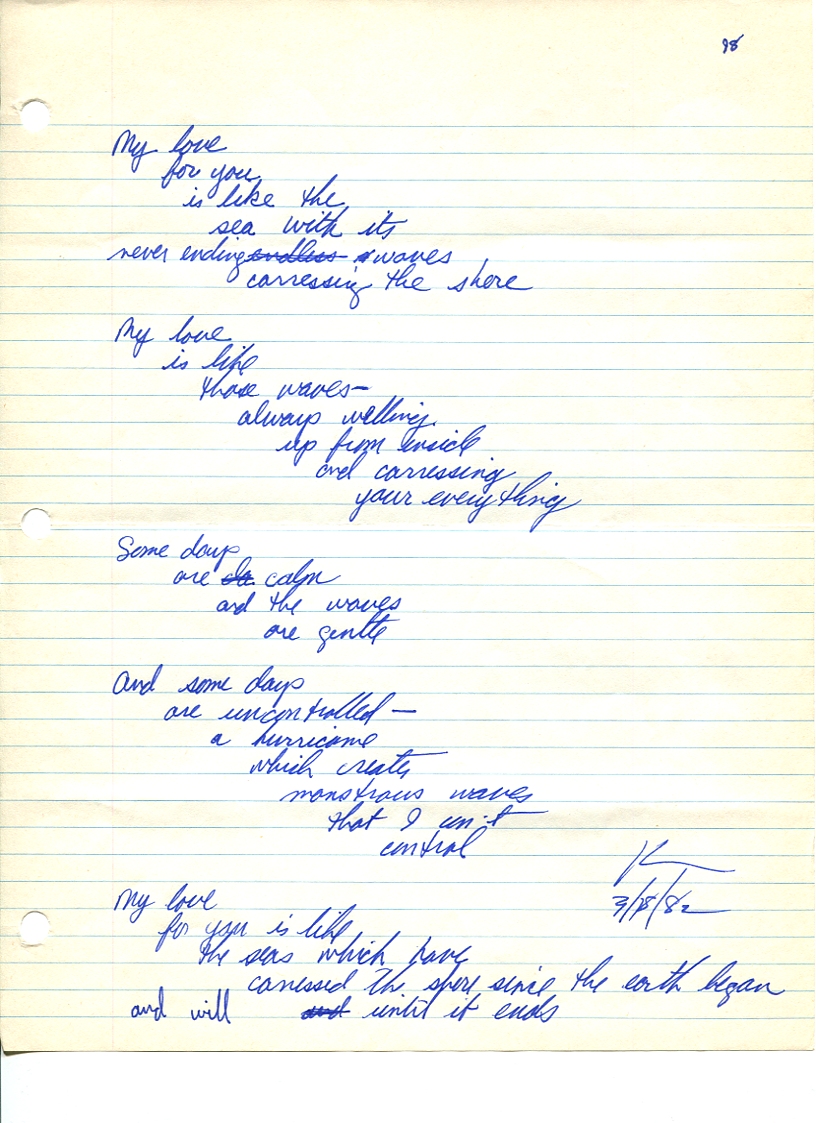 98
My love
for you
is like the
sea with its
never ending endless waves
carressing the shore
My love
is like
those waves—
always welling
up from inside
and carressing
your everything
Some days
are da calm
and the waves
are gentle
And some days
are uncontrolled—
a hurricane
which creates
monstrous waves
that I can't
control
K
3/8/82
My love
for you is like
the seas which have
carressed the shore since the earth began
and will and until it ends